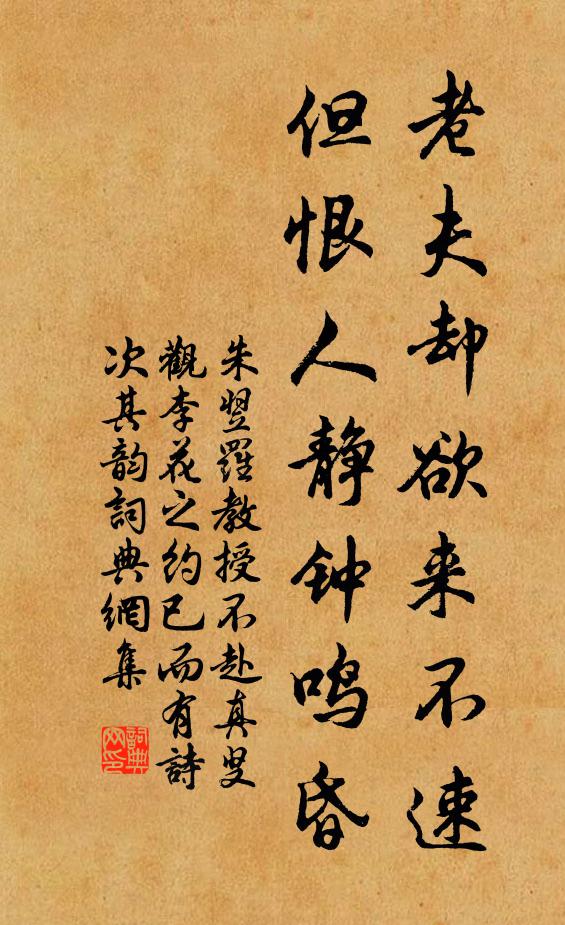 老夫却欲来不速
但恨人静钟鸣昏
朱翌羅教授不赴真叟
觀李花之約已而有詩
次其韵詞典網集
詞典网印